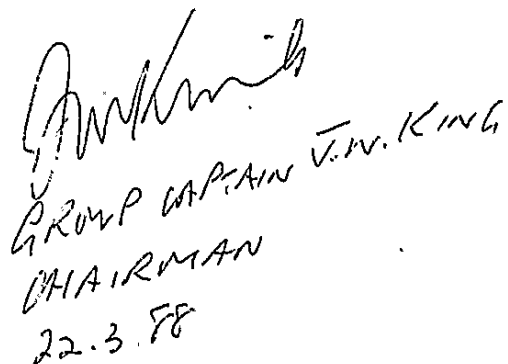 GROUP CAPTAIN J.W. KING
CHAIRMAN
22.3.88